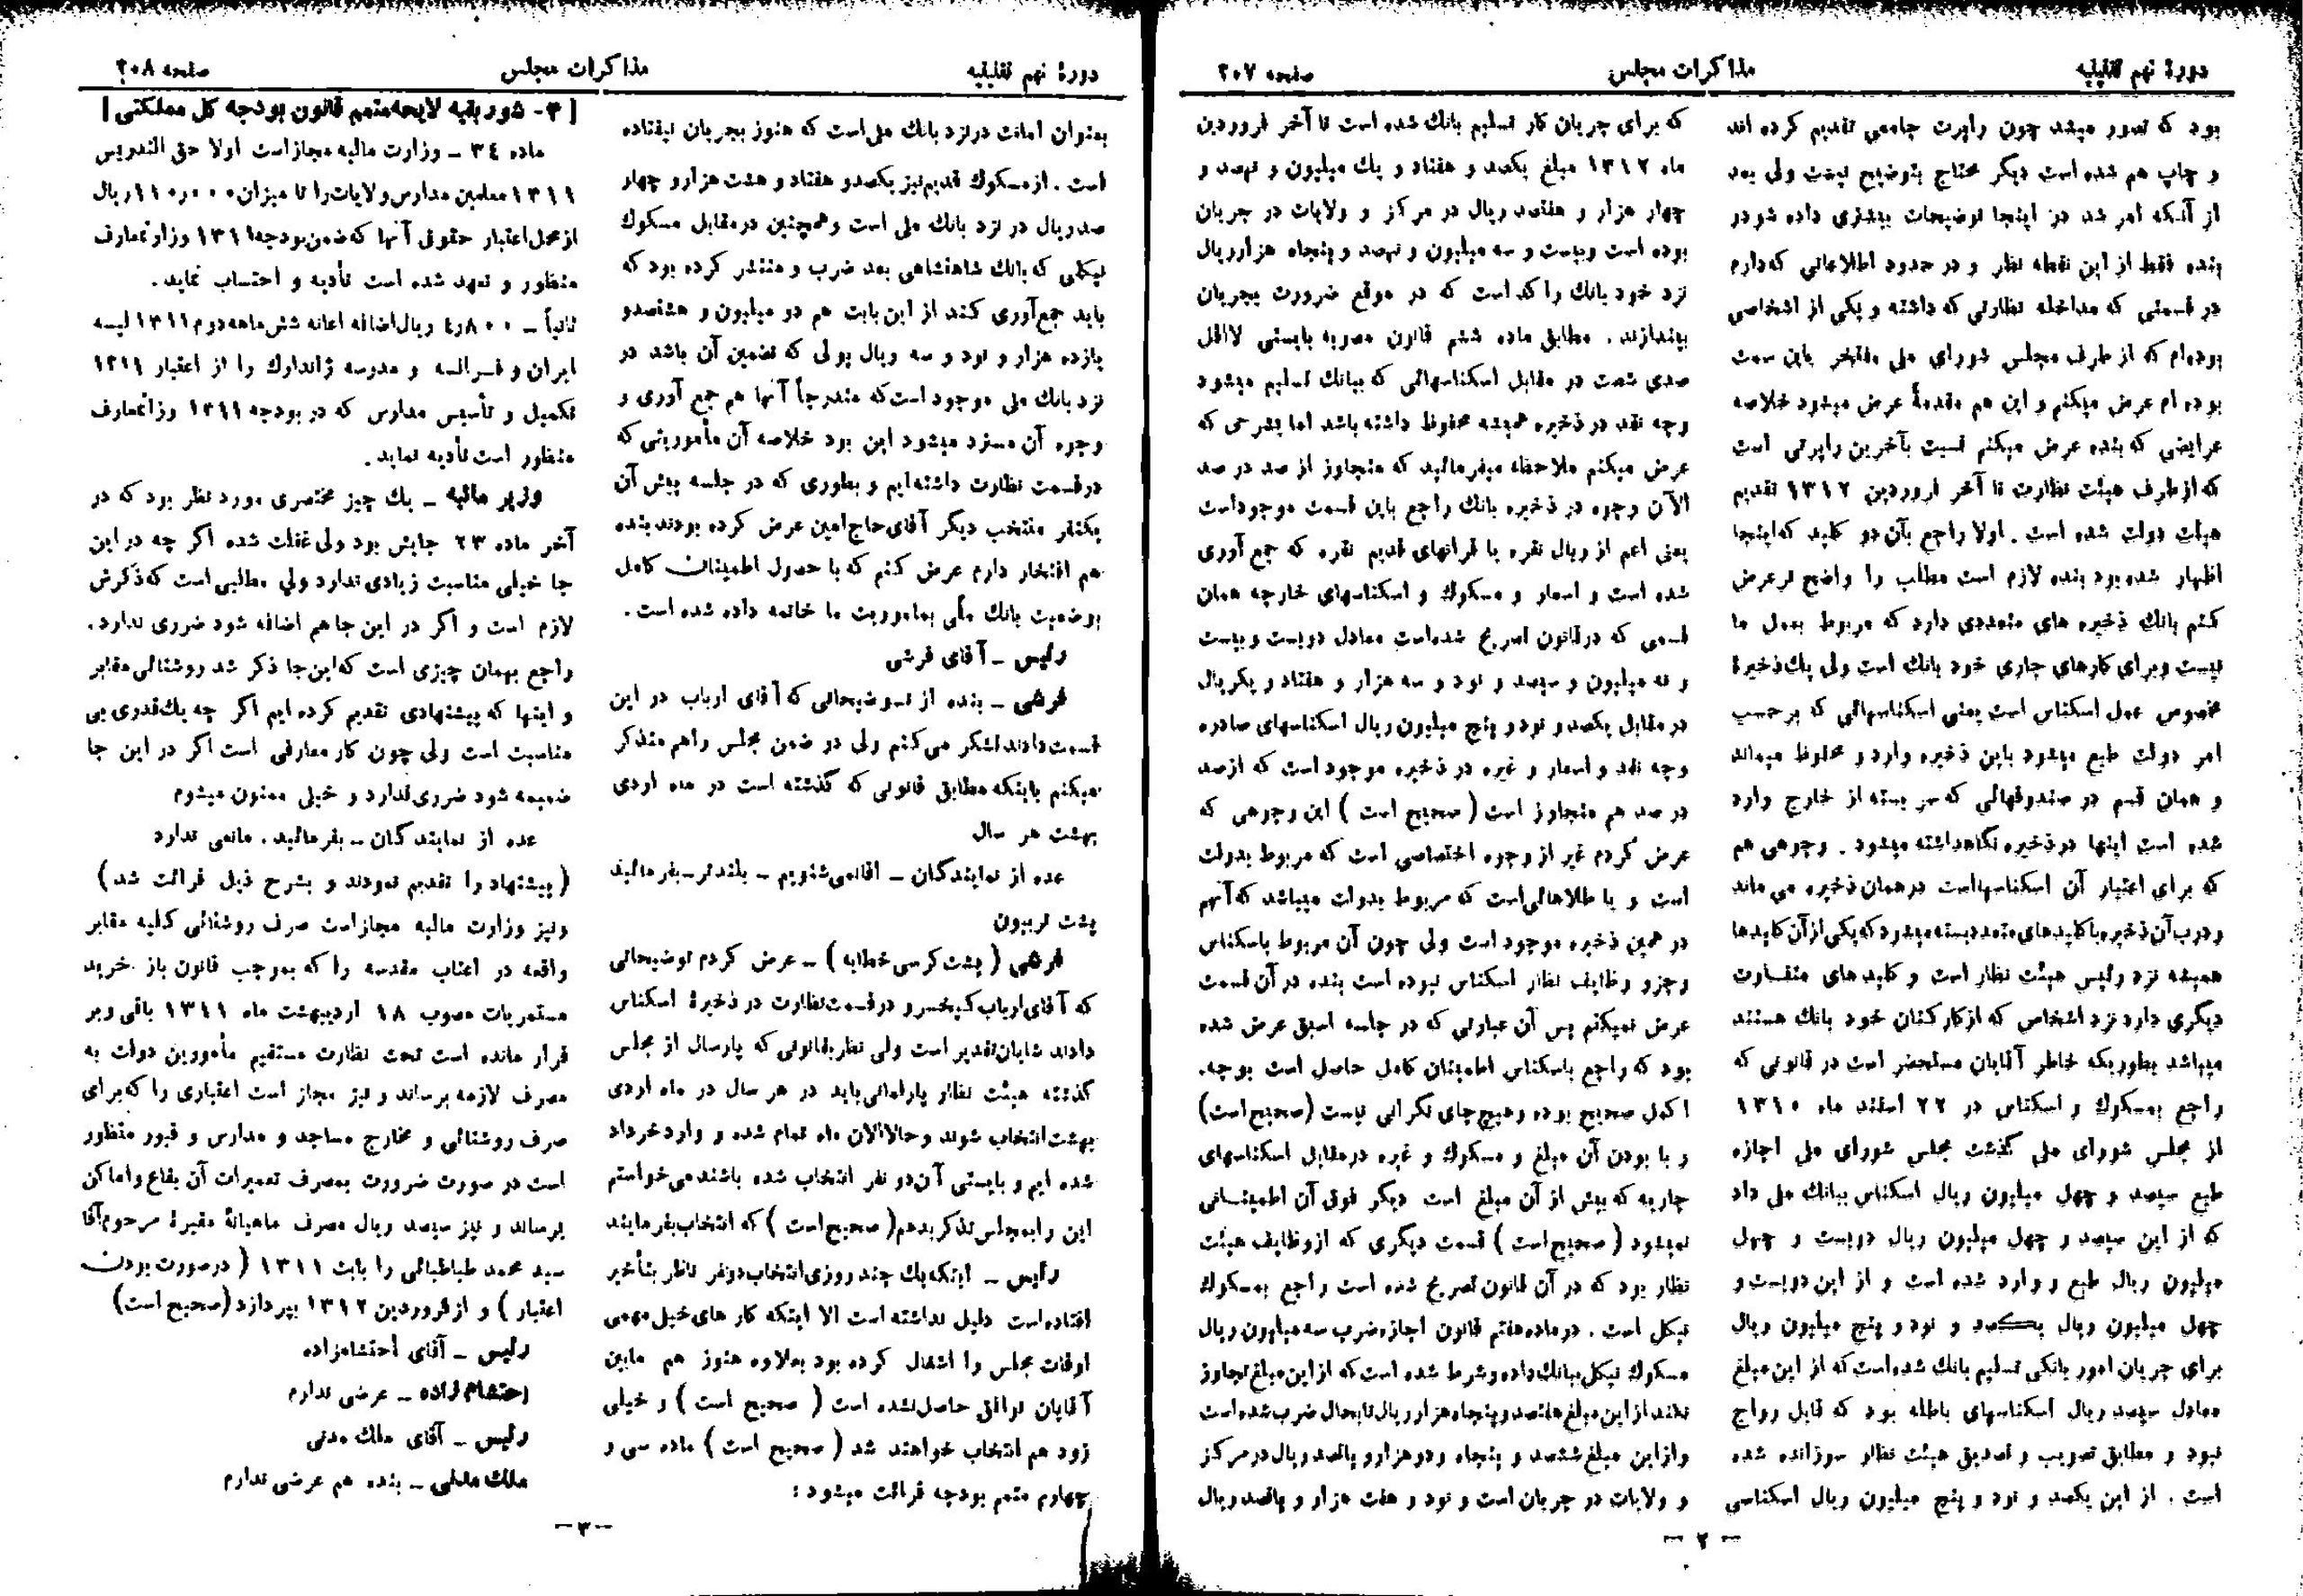 دورهٔ نهم تقنینیه
مذاکرات مجلس
صفحه ۲۰۷
بود که تصور میشد چون راپرت جامعی تقدیم کرده اند
و چاپ هم شده است دیگر محتاج بتوضیح نیست ولی بعد
از آنکه امر شد در اینجا توضیحات بیشتری داده شود در
بنده فقط از این نقطه نظر و در حدود اطلاعاتی که دارم
در قسمتی که مداخله نظارتی که داشته و یکی از اشخاصی
بوده‌ام که از طرف مجلس شورای ملی مفتخر باین سمت
بوده ام عرض میکنم و این هم مقدمةً عرض میشود خلاصه
عرایضی که بنده عرض میکنم نسبت بآخرین راپرتی است
که از طرف هیئت نظارت تا آخر فروردین ۱۳۱۲ تقدیم
هیئت دولت شده است . اولا راجع بآن دو کلید که اینجا
اظهار شده بود بنده لازم است مطلب را واضح تر عرض
کنم بانك ذخیره های متعددی دارد که مربوط بعمل ما
نیست و برای کارهای جاری خود بانك است ولی یك ذخیرهٔ
مخصوص عمل اسکناس است یعنی اسکناسهائی که بر حسب
امر دولت طبع میشود باین ذخیره وارد و محفوظ میماند
و همان قسم در صندوقهائی که سر بسته از خارج وارد
شده است اینها در ذخیره نگاهداشته میشود . وجوهی هم
که برای اعتبار آن اسکناسها است در همان ذخیره می ماند
و درب آن ذخیره با کلیدهای متعدد بسته میشود که یکی از آن کلیدها
همیشه نزد رئیس هیئت نظار است و کلید های متفاوت
دیگری دارد نزد اشخاص که از کارکنان خود بانك هستند
میباشد بطوریکه خاطر آقایان مستحضر است در قانونی که
راجع بمسکوك و اسکناس در ۲۲ اسفند ماه ۱۳۱۰
از مجلس شورای ملی گذشت مجلس شورای ملی اجازه
طبع سیصد و چهل میلیون ریال اسکناس ببانك ملی داد
که از این سیصد و چهل میلیون ریال دویست و چهل
میلیون ریال طبع و وارد شده است و از این دویست و
چهل میلیون ریال یکصد و نود و پنج میلیون ریال
برای جریان امور بانکی تسلیم بانك شده است که از این مبلغ
معادل سیصد ریال اسکناسهای باطله بود که قابل رواج
نبود و مطابق تصویب و تصدیق هیئت نظار سوزانده شده
است . از این یکصد و نود و پنج میلیون ریال اسکناسی
که برای جریان کار تسلیم بانك شده است تا آخر فروردین
ماه ۱۳۱۲ مبلغ یکصد و هفتاد و یك میلیون و نهصد و
چهار هزار و هفتصد ریال در مرکز و ولایات در جریان
بوده است و بیست و سه میلیون و نهصد و پنجاه هزار ریال
نزد خود بانك راکد است که در موقع ضرورت بجریان
بیندازند . مطابق ماده ششم قانون مصوبه بایستی لااقل
صدی شصت در مقابل اسکناسهائی که ببانك تسلیم میشود
وجه نقد در ذخیره همیشه محفوظ داشته باشد اما بشرحی که
عرض میکنم ملاحظه میفرمائید که متجاوز از صد در صد
الآن وجوه در ذخیره بانك راجع باین قسمت موجود است
یعنی اعم از ریال نقره یا قرانهای قدیم نقره که جمع آوری
شده است و اسعار و مسکوك و اسکناسهای خارجه همان
قسمی که در قانون تصریح شده است معادل دویست و بیست
و نه میلیون و سیصد و نود و سه هزار و هفتاد و یکریال
در مقابل یکصد و نود و پنج میلیون ریال اسکناسهای صادره
وجه نقد و اسعار و غیره در ذخیره موجود است که از صد
در صد هم متجاوز است ( صحیح است ) این وجوهی که
عرض کردم غیر از وجوه اختصاصی است که مربوط بدولت
است و یا طلاهائی است که مربوط بدولت میباشد که آنهم
در همین ذخیره موجود است ولی چون آن مربوط باسکناس
وجزو وظایف نظار اسکناس نبوده است بنده در آن قسمت
عرض نمیکنم پس آن عبارتی که در جلسه اسبق عرض شده
بود که راجع باسکناس اطمینان کامل حاصل است بوجه
اکمل صحیح بوده و هیچ جای نگرانی نیست (صحیح است)
و با بودن آن مبلغ و مسکوك و غیره در مقابل اسکناسهای
جاریه که بیش از آن مبلغ است دیگر فوق آن اطمینانی
نمیشود ( صحیح است ) قسمت دیگری که از وظایف هیئت
نظار بود که در آن قانون تصریح شده است راجع بمسکوك
نیکل است . در ماده هفتم قانون اجازه ضرب سه میلیون ریال
مسکوك نیکل ببانك داده و شرط شده است که از این مبلغ تجاوز
نکند از این مبلغ هفتصد و پنجاه هزار ریال تا بحال ضرب شده است
و از این مبلغ ششصد و پنجاه و دو هزار و پانصد ریال در مرکز
و ولایات در جریان است و نود و هفت هزار و پانصد ریال
— ۲ —
دورهٔ نهم تقنینیه
مذاکرات مجلس
صفحه ۲۰۸
بعنوان امانت در نزد بانك ملی است که هنوز بجریان نیفتاده
است . از مسکوك قدیم نیز یکصد و هفتاد و هشت هزار و چهار
صد ریال در نزد بانك ملی است و همچنین در مقابل مسکوك
نیکلی که بانك شاهنشاهی بعد ضرب و منتشر کرده بود که
باید جمع آوری کند از این بابت هم دو میلیون و هشتصد و
یازده هزار و نود و سه ریال پولی که تضمین آن باشد در
نزد بانك ملی موجود است که متدرجاً آنها هم جمع آوری و
وجوه آن مسترد میشود این بود خلاصه آن مأموریتی که
در قسمت نظارت داشته ایم و بطوری که در جلسه پیش آن
یکنفر منتخب دیگر آقای حاج امین عرض کرده بودند بنده
هم افتخار دارم عرض کنم که با حصول اطمینان کامل
بوضعیت بانك ملی بماموریت ما خاتمه داده شده است .
رئیس ـ آقای فرشی
فرشی ـ بنده از توضیحاتی که آقای ارباب در این
قسمت دادند تشکر می کنم ولی در ضمن مجلس را هم متذکر
میکنم باینکه مطابق قانونی که گذشته است در ماه اردی
بهشت هر سال
عده از نمایندگان ـ آقا نمی شنویم ـ بلندتر ـ بفرمائید
پشت تریبون
فرشی ( پشت کرسی خطابه ) ـ عرض کردم توضیحاتی
که آقای ارباب کیخسرو در قسمت نظارت در ذخیرهٔ اسکناس
دادند شایان تقدیر است ولی نظر بقانونی که پارسال از مجلس
گذشته هیئت نظار پارلمانی باید در هر سال در ماه اردی
بهشت انتخاب شوند و حالا الان ماه تمام شده و وارد خرداد
شده ایم و بایستی آن دو نفر انتخاب شده باشند می خواستم
این را بمجلس تذکر بدهم ( صحیح است ) که انتخاب بفرمایند
رئیس ـ اینکه یك چند روزی انتخاب دو نفر ناظر بتأخیر
افتاده است دلیل نداشته است الا اینکه کار های خیلی مهمی
اوقات مجلس را اشغال کرده بود بعلاوه هنوز هم مابین
آقایان توافق حاصل نشده است ( صحیح است ) و خیلی
زود هم انتخاب خواهند شد ( صحیح است ) ماده سی و
چهارم متمم بودجه قرائت میشود :
[ ۳- شور بقیه لایحه متمم قانون بودجه کل مملکتی ]
ماده ۳٤ ـ وزارت مالیه مجاز است اولا حق التدریس
۱۳۱۱ معلمین مدارس ولایات را تا میزان ۱۱۰ر۰۰۰ ریال
از محل اعتبار حقوق آنها که ضمن بودجه ۱۳۱۱ وزارتمعارف
منظور و تعهد شده است تأدیه و احتساب نماید .
ثانیاً ـ ٤ر۸۰۰ ریال اضافه اعانه شش ماهه دوم ۱۳۱۱ لیسه
ایران و فرانسه و مدرسه ژاندارك را از اعتبار ۱۳۱۱
تکمیل و تأسیس مدارس که در بودجه ۱۳۱۱ وزارتمعارف
منظور است تأدیه نماید .
وزیر مالیه ـ یك چیز مختصری مورد نظر بود که در
آخر ماده ۲۳ جایش بود ولی غفلت شده اگر چه در این
جا خیلی مناسبت زیادی ندارد ولی مطالبی است که ذکرش
لازم است و اگر در این جا هم اضافه شود ضرری ندارد .
راجع بهمان چیزی است که این جا ذکر شد روشنائی مقابر
و اینها که پیشنهادی تقدیم کرده ایم اگر چه یك قدری بی
مناسبت است ولی چون کار معارفی است اگر در این جا
ضمیمه شود ضرری ندارد و خیلی ممنون میشوم
عده از نمایندگان ـ بفرمائید . مانعی ندارد
( پیشنهاد را تقدیم نمودند و بشرح ذیل قرائت شد )
ونیز وزارت مالیه مجاز است صرف روشنائی کلیه مقابر
واقعه در اعتاب مقدسه را که بموجب قانون باز خرید
مستمریات مصوب ۱۸ اردیبهشت ماه ۱۳۱۱ باقی و بر
قرار مانده است تحت نظارت مستقیم مأمورین دولت به
مصرف لازمه برساند و نیز مجاز است اعتباری را که برای
صرف روشنائی و مخارج مساجد و مدارس و قبور منظور
است در صورت ضرورت بمصرف تعمیرات آن بقاع و اماکن
برساند و نیز سیصد ریال مصرف ماهیانهٔ مقبرهٔ مرحوم آقا
سید محمد طباطبائی را بابت ۱۳۱۱ ( در صورت بودن
اعتبار ) و از فروردین ۱۳۱۲ بپردازد (صحیح است)
رئیس ـ آقای احتشام‌زاده
احتشام زاده ـ عرضی ندارم
رئیس ـ آقای ملك مدنی
ملك مدنی ـ بنده هم عرضی ندارم
—۳—